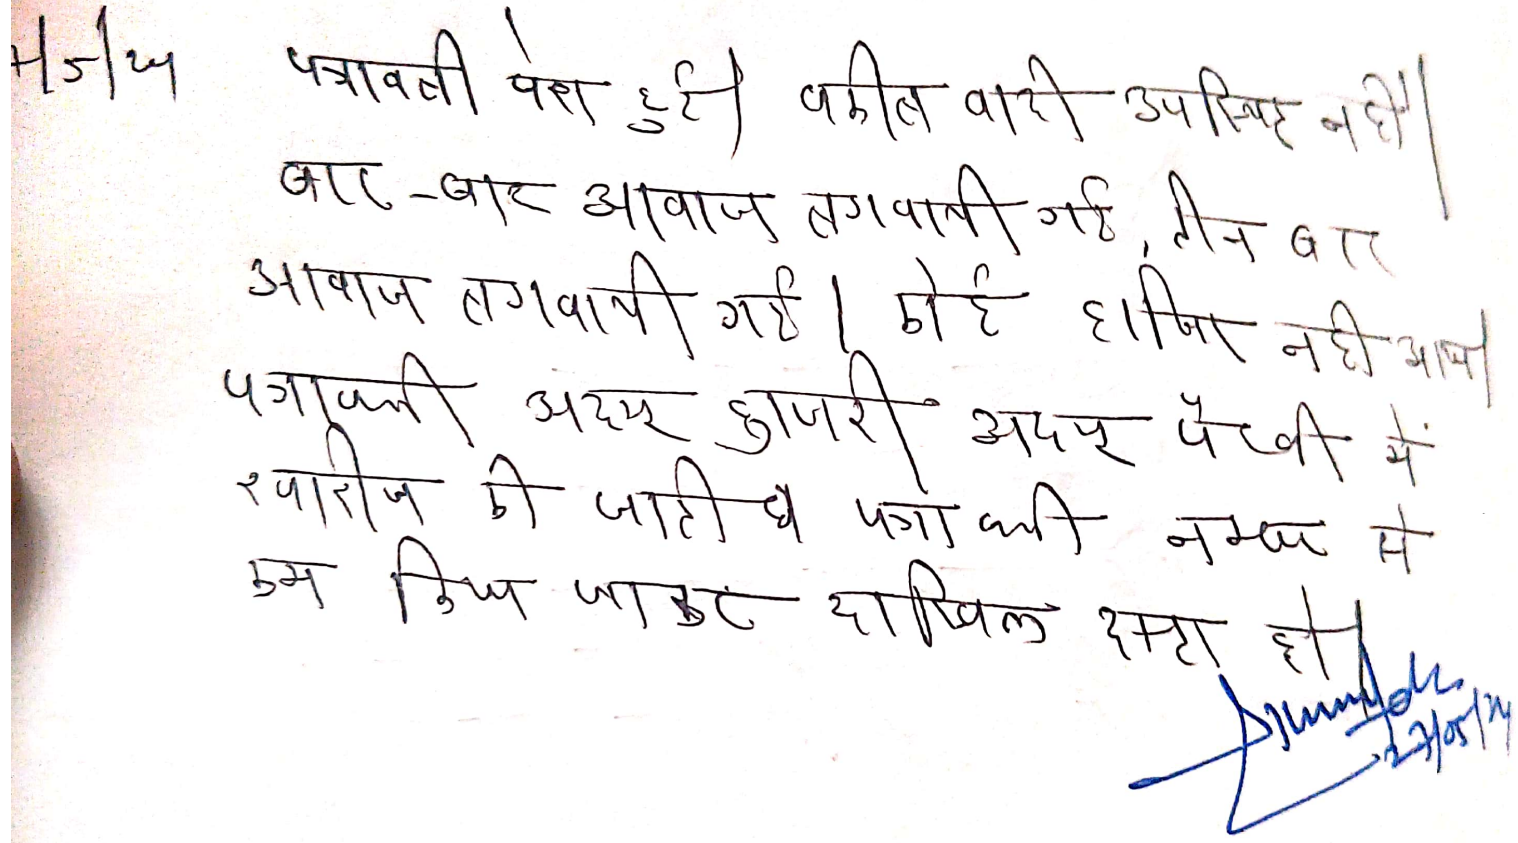 7/5/24 पत्रावली पेश हुई। वकील वादी उपस्थित नहीं।
बार-बार आवाज लगवायी गई, तीन बार
आवाज लगवायी गई। कोई हाजिर नही आया।
पत्रावली अदम हाजरी अदम पैरवी में
खारीज की जाती है पत्रावली नम्बर से
कम किया जाकर दाखिल दफ्तर हो।
27/05/24